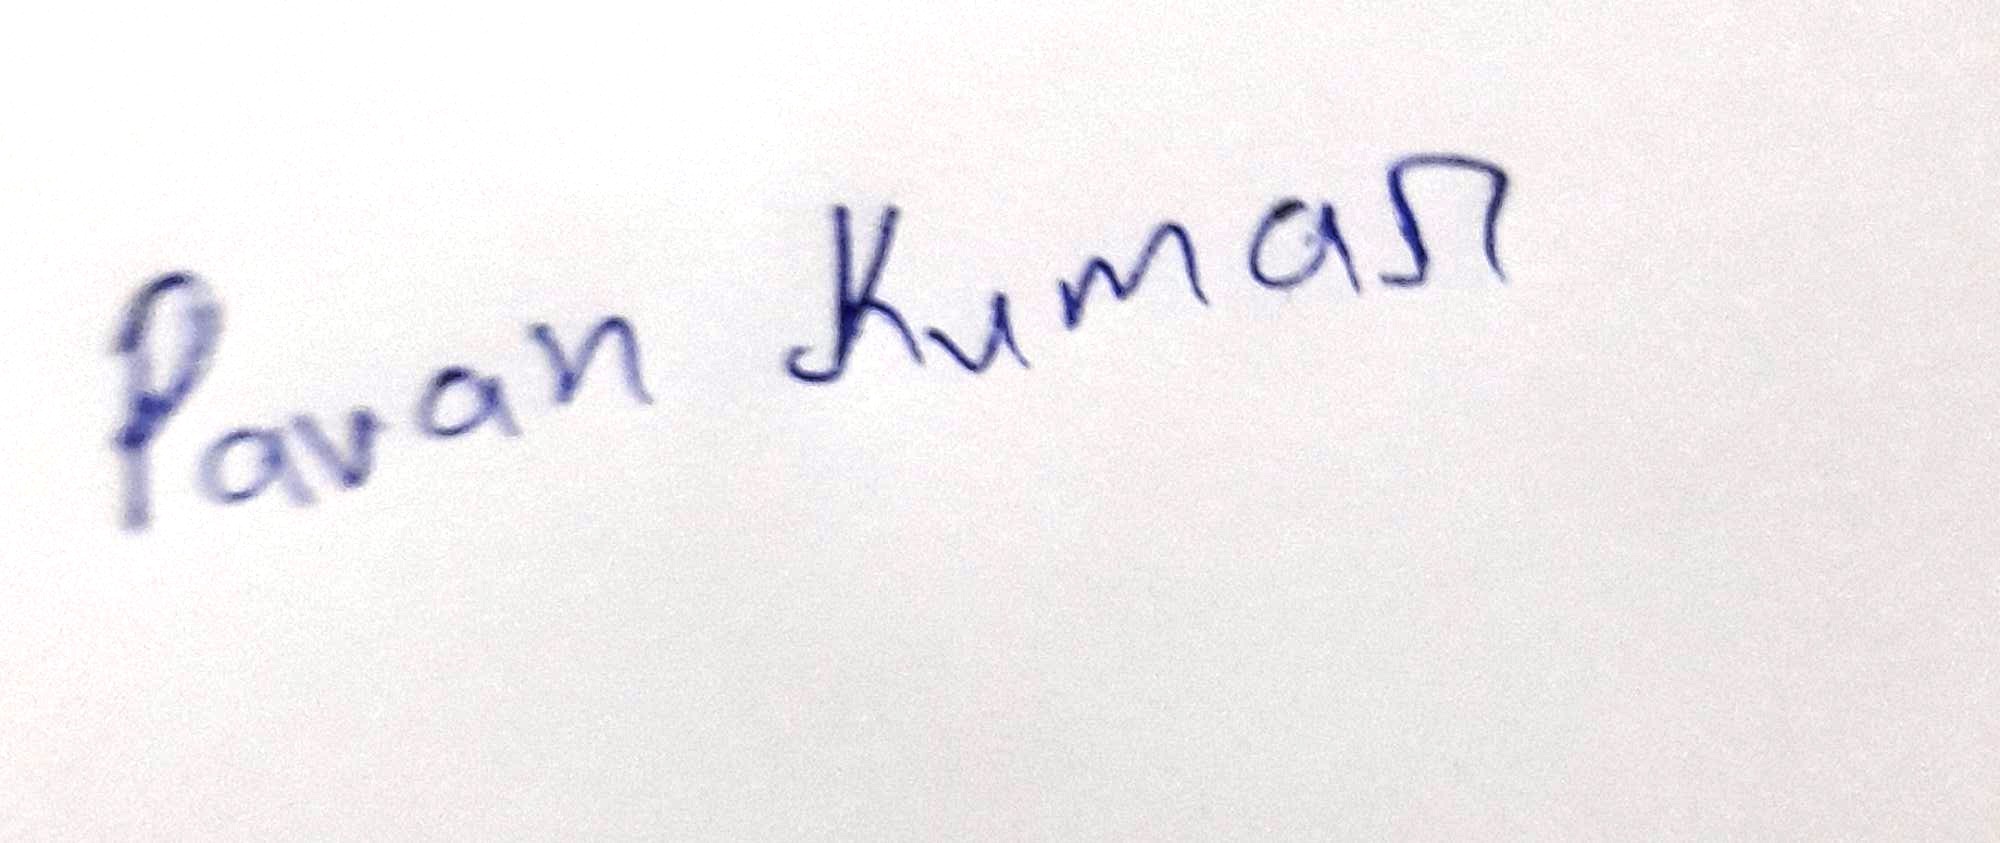 Pavan Kumar